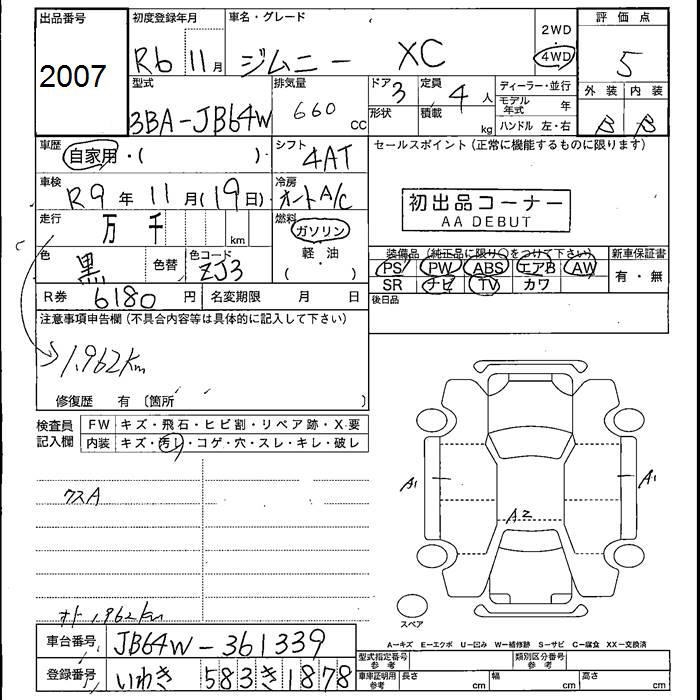 出品番号 2007
初度登録年月 R6 11月
車名・グレード ジムニー XC
2WD
4WD
評価点 5
外装 内装
B B
型式 3BA-JB64W
排気量 660 cc
ドア 3
形状
定員 4人
積載 kg
ディーラー・並行
モデル年式 年
ハンドル 左・右
車歴 自家用・( )
シフト 4AT
車検 R9年11月(19日)
冷房 オートA/C
走行 万 千 km
燃料 ガソリン
軽・油
( )
色 黒 色替
色コード ZJ3
R券 6180円
名変期限 月 日
セールスポイント(正常に機能するものに限ります)
初出品コーナー
AA DEBUT
装備品(純正品に限り○をつけて下さい)
PS PW ABS エアB AW
SR ナビ TV カワ
新車保証書
有・無
後日品
注意事項申告欄(不具合内容等は具体的に記入して下さい)
1,962km
修復歴 有(箇所 )
検査員記入欄
FW キズ・飛石・ヒビ割・リペア跡・X要
内装 キズ・汚レ・コゲ・穴・スレ・キレ・破レ
A1
A1
A2
スペア
オド 1,962km
A=キズ E=エクボ U=凹み W=補修跡 S=サビ C=腐食 XX=交換済
車台番号 JB64W-361339
登録番号 いわき 583 き 1878
型式指定番号 参考
類別区分番号 参考
車庫証明用参考 長さ cm 幅 cm 高さ cm